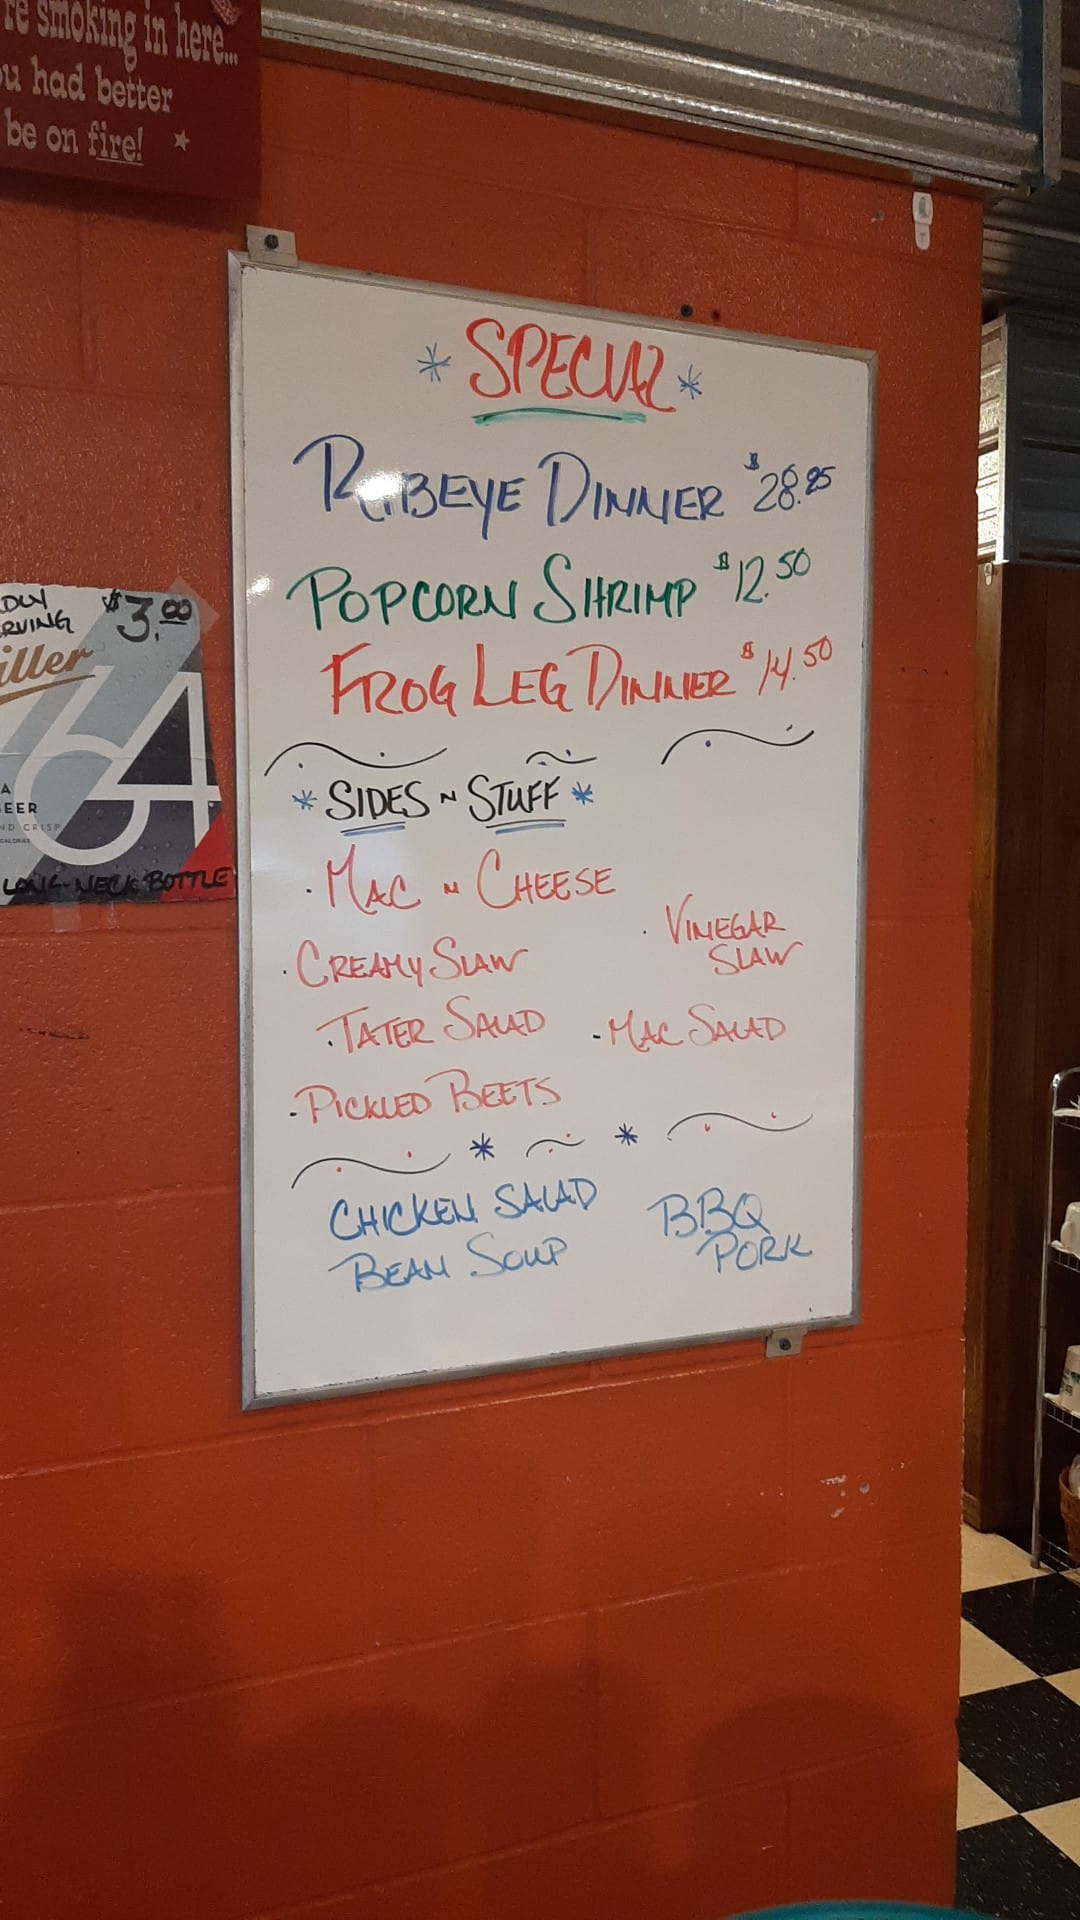 re smoking in here...
u had better
be on fire!
* SPECIAL *
RIBEYE DINNER $28.95
POPCORN SHRIMP $12.50
FROG LEG DINNER $14.50
* SIDES N STUFF *
· MAC N CHEESE
· CREAMY SLAW
· VINEGAR
SLAW
· TATER SALAD · MAC SALAD
· PICKLED BEETS
CHICKEN SALAD
BEAN SOUP
BBQ
PORK
$3.00
RVING
iller
64
A
EER
ND CRISP
CALORIES
LONG-NECK BOTTLE